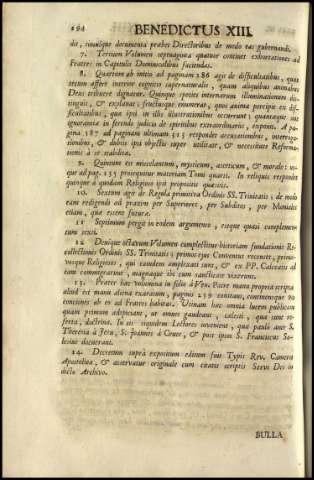 194 BENEDICTUS XIII.
dit, simulque documenta præbet Directoribus de modo eas gubernandi.
7. Tertium Volumen septuaginta quatuor continet exhortationes ad
Fratres in Capitulis Dominicalibus faciendas.
8. Quartum ab initio ad paginam 386 agit de difficultatibus, quas
secum affert interior cognitio supernaturalis, quam aliquibus animabus
Deus tribuere dignatur. Quinque species internarum illuminationum dis-
tinguit, & explanat; fructusque enumerat, quos anima percipit ex dif-
ficultatibus, quæ ipsi in illis illustrationibus occurrunt; quantaque sit
ignorantia in ferendo judicio de spiritibus extraordinariis, exponit. A pa-
gina 387 ad paginam ultimam 515 respondet accusationibus, interroga-
tionibus, & dubiis ipsi objectis super utilitate, & necessitate Reforma-
tionis à se stabilitæ.
9. Quintum est miscellaneum, mysticum, asceticum, & morale: us-
que ad pag. 135 prosequitur materiam Tomi quarti. In reliquis respondet
quinque à quodam Religioso ipsi propositis quæsitis.
10. Sextum agit de Regula primitiva Ordinis SS. Trinitatis; de modo
eam redigendi ad praxim per Superiores, per Subditos, per Moniales
etiam, quæ essent futuræ.
11 Septimum pergit in eodem argumento, eique quasi complemen-
tum texit.
12 Denique octavum Volumen complectitur historiam fundationis Re-
collectionis Ordinis SS. Trinitatis; primos ejus Conventus recenset, primos-
vosque Religiosos, qui eandem amplexati sunt, & ex PP. Calceatis ad
eam commigrarunt, magnaque ibi cum sanctitate vixerunt.
13. Præter hæc volumina in folio à Ven. Patre manu propria scripta
aliud est manu aliena exaratum, paginis 239 constans, continensque
conciones ab eo ad Fratres habitas. Utinam hæc omnia lucem publicam
quam primum adspiciant, ut omnes gaudeant, calceti, qua sunt re-
ferta, doctrina. In iis siquidem Lectores invenient, quo pacto aut S.
Theresia à Jesu, S. Joannes à Cruce, & post ipsos S. Franciscus Sa-
lesius docuerunt.
14. Decretum suprà expositum editum fuit Typis Rev. Cameræ
Apostolicæ, & asservatur originale cum citatis scriptis Servi Dei in
dicto Archivo.
BULLA